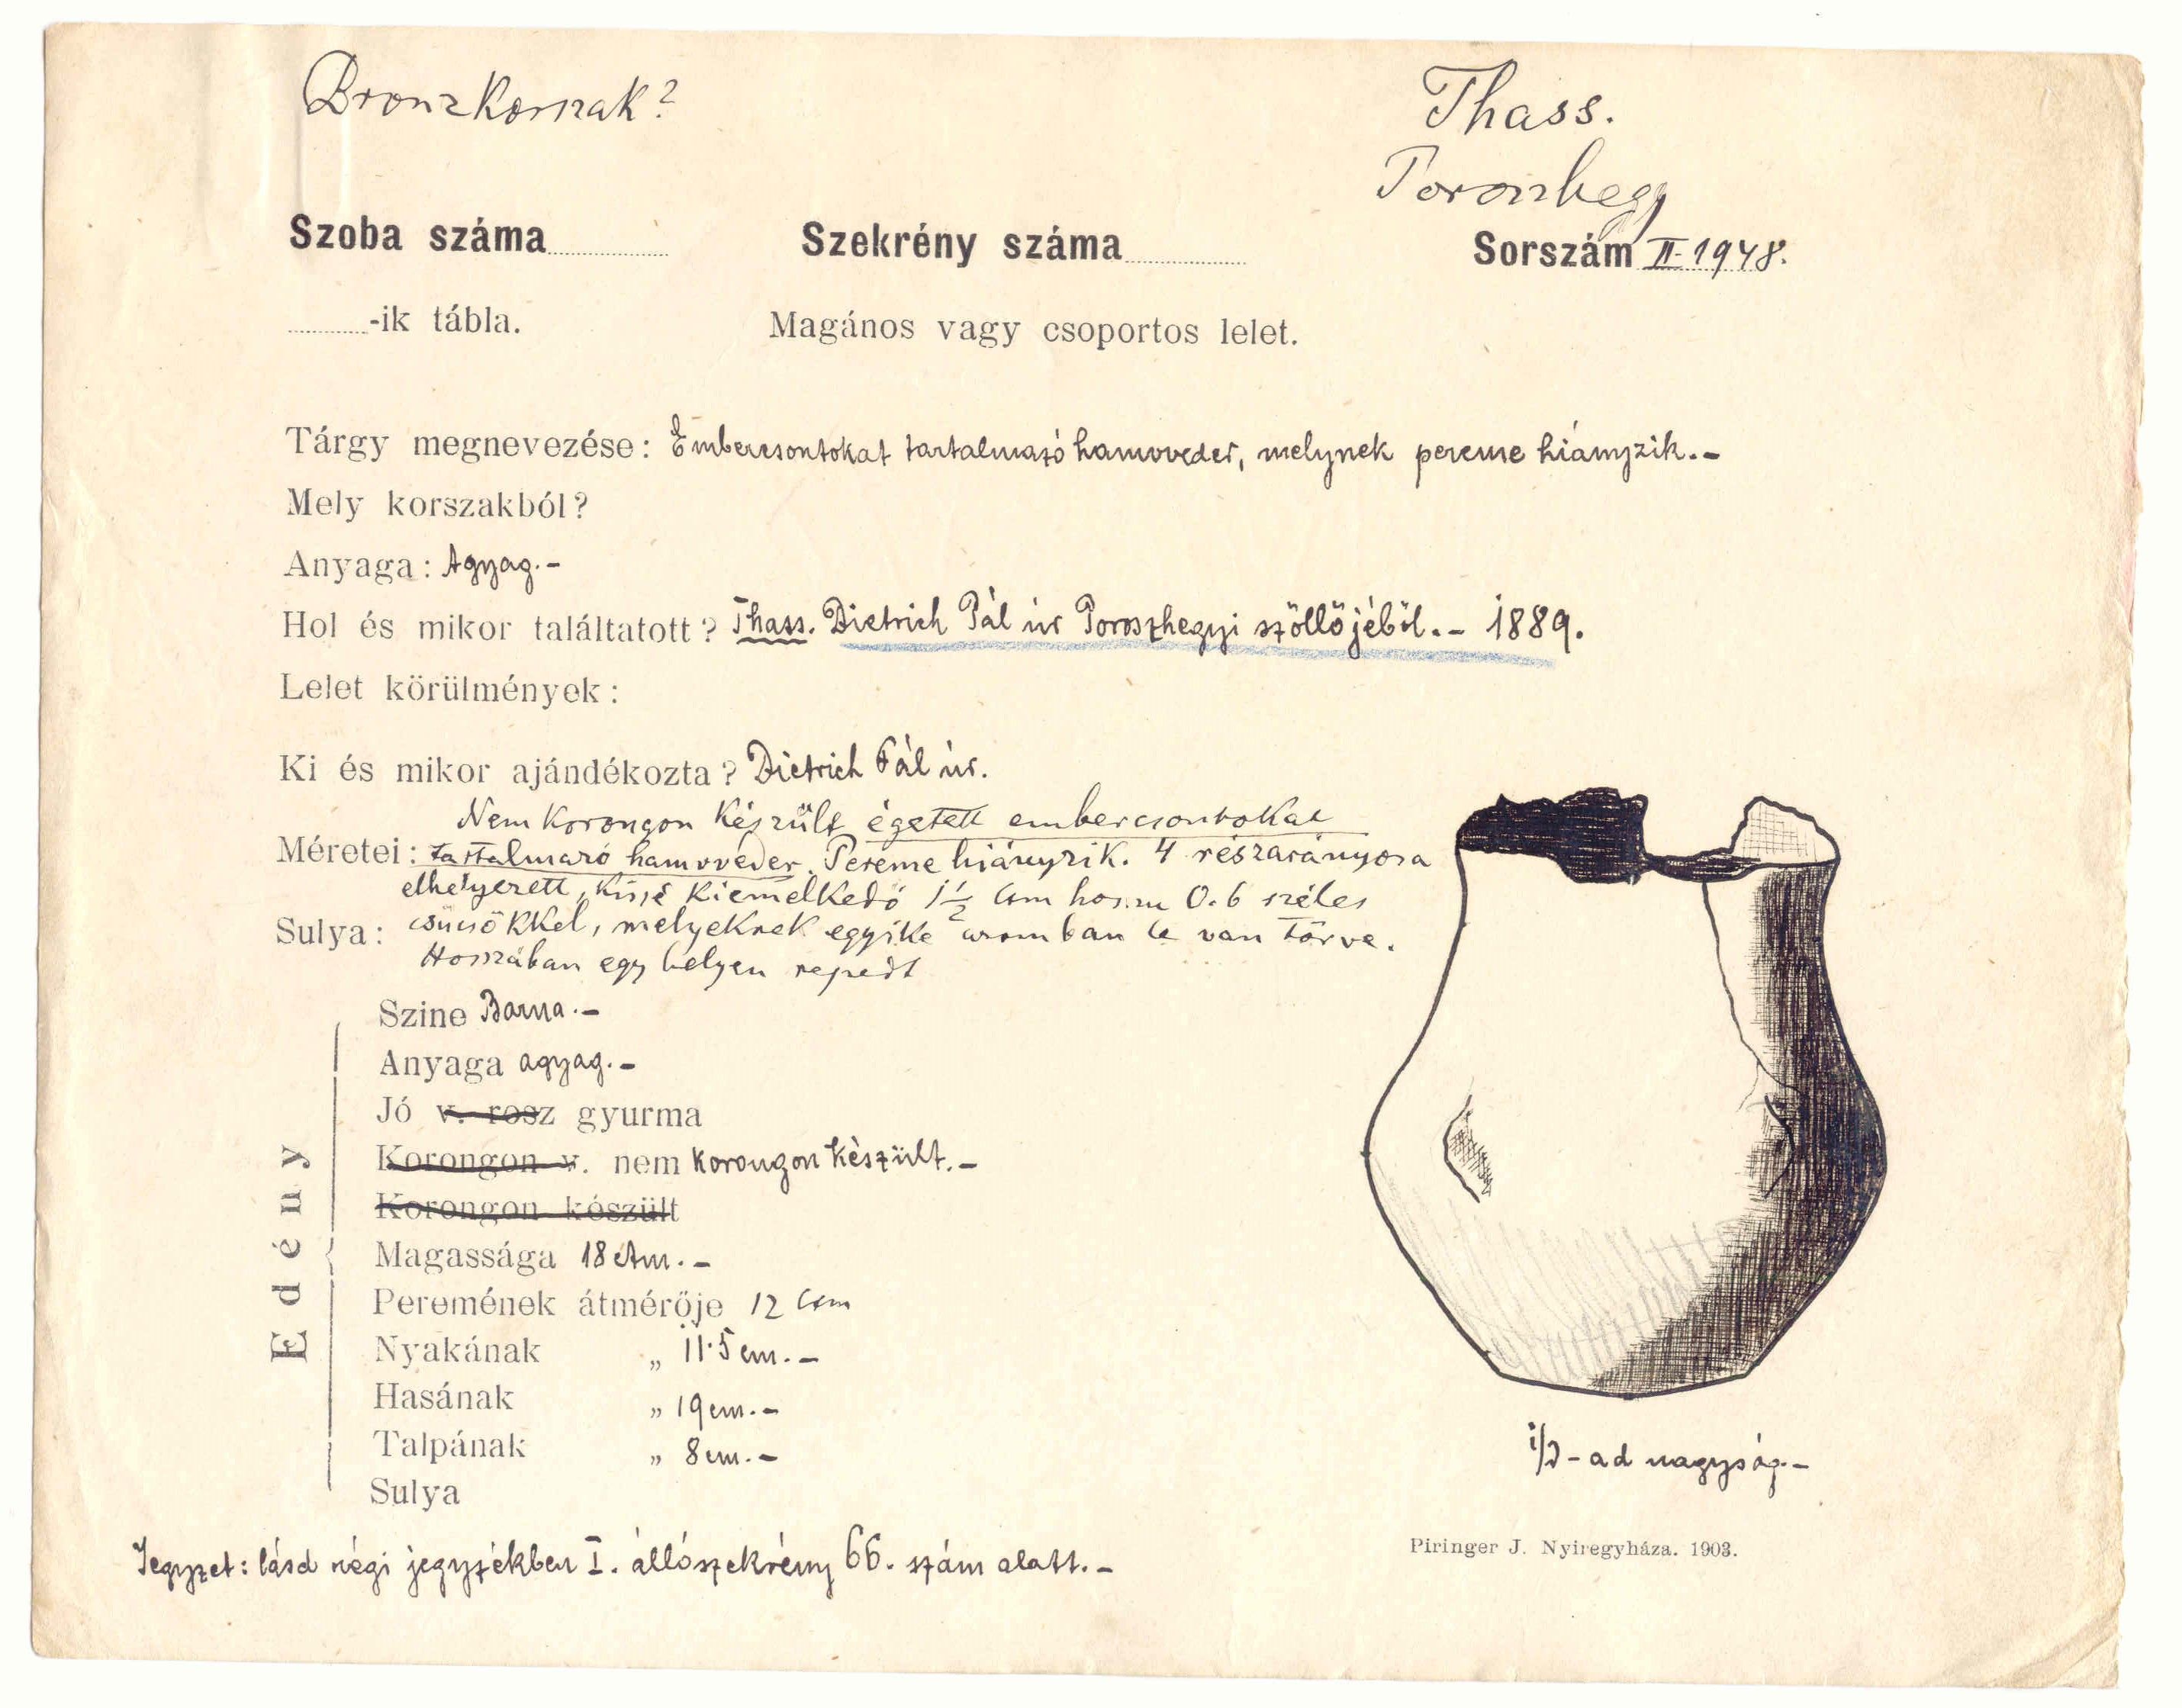 Bronzkorszak?
Thass.
Poroszhegy
Szoba száma
Szekrény száma
Sorszám II-1948.
-ik tábla.
Magános vagy csoportos lelet.
Tárgy megnevezése: Embercsontokat tartalmazó hamvveder, melynek pereme hiányzik.-
Mely korszakból?
Anyaga: Agyag.-
Hol és mikor találtatott? Thass. Dietrich Pál úr Poroszhegyi szöllőjéből.- 1889.
Lelet körülmények:
Ki és mikor ajándékozta? Dietrich Pál úr.
Nem korongon készült égetett embercsontokat
Méretei: tartalmazó hamvveder. Pereme hiányzik. 4 részarányosa
elhelyezett, kissé kiemelkedő 1 1/2 cm hosszu 0.6 széles
Sulya: csücsökkel, melyeknek egyike azomban le van törve.
Hosszában egy helyen repedt
Edény
Szine Barna.-
Anyaga agyag.-
Jó v. rosz gyurma
Korongon v. nem korongon készült.-
Korongon készült
Magassága 18 cm.-
Peremének átmérője 12 cm
Nyakának „ 11.5 cm.-
Hasának „ 19 cm.-
Talpának „ 8 cm.-
Sulya
1/2-ad nagyság.-
Jegyzet: lásd régi jegyzékben I. állószekrény 66. szám alatt.-
Piringer J. Nyiregyháza. 1903.